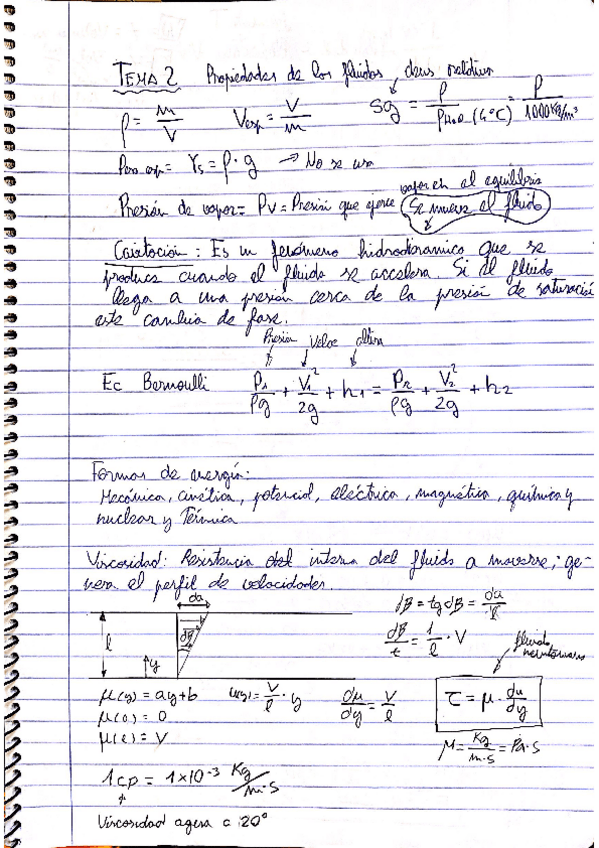 TEMA 2 Propiedades de los fluidos dens relativa
ρ = m/V Vesp = V/m Sg = ρ/ρH2O (4°C) = ρ/1000 Kg/m³
Peso esp = γs = ρ · g → No se usa
vapor en el equilibrio
Presión de vapor = Pv = Presión que ejerce Se mueve el fluido
Cavitación : Es un fenómeno hidrodinamico que se
produce cuando el fluido se accelera. Si el fluido
llega a una presión cerca de la presión de saturación
este cambia de fase.
Presión Veloc altura
Ec Bernoulli P1/ρg + V1²/2g + h1 = P2/ρg + V2²/2g + h2
Formas de energía:
Mecánica, cinética, potencial, eléctrica, magnética, química y
nuclear y Térmica
Viscosidad: Resistencia interna del fluido a moverse; ge-
nera el perfil de velocidades.
da
dβ
l
y
dβ = tg dβ = da/l
dβ/t = 1/l · V
fluido newtoniano
μ(y) = ay+b u(y) = V/l · y du/dy = V/l τ = μ · du/dy
μ(0) = 0
μ(l) = V
μ = Kg/m·s = Pa·s
1cp = 1×10⁻³ Kg/m·s
Viscosidad a 20°